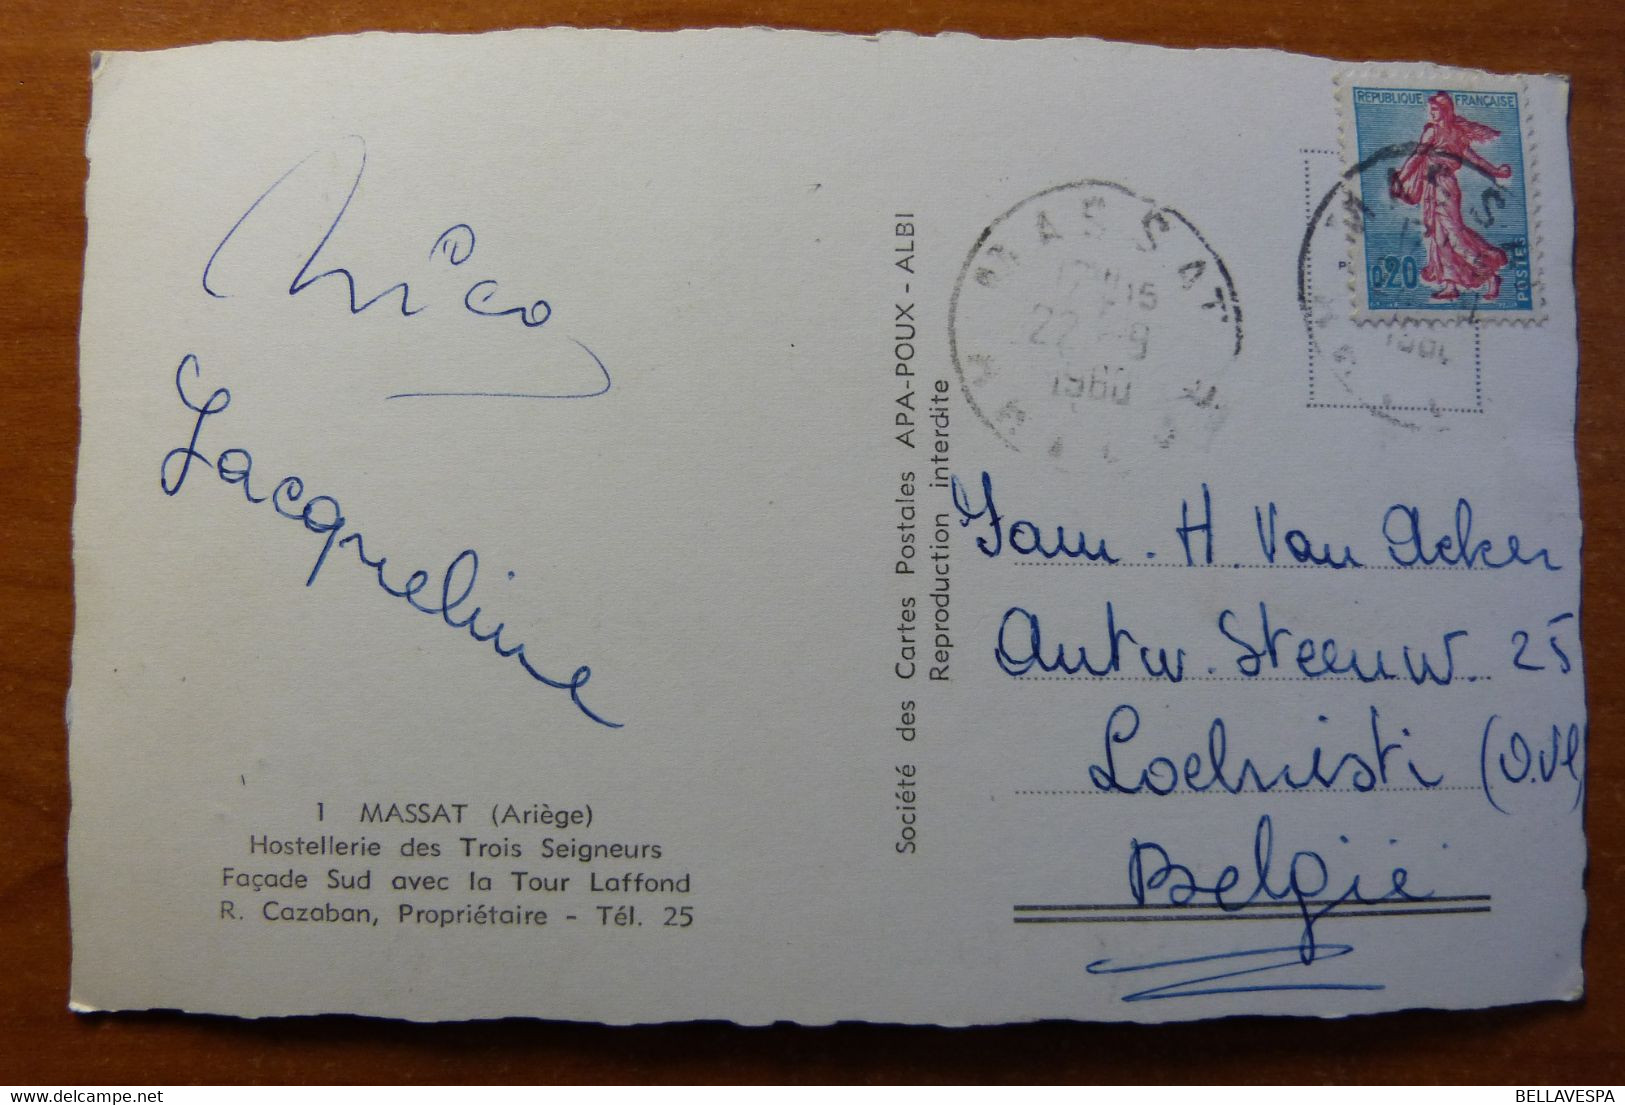 Nico
Jacqueline
1 MASSAT (Ariège)
Hostellerie des Trois Seigneurs
Façade Sud avec la Tour Laffond
R. Cazaban, Propriétaire - Tél. 25
Société des Cartes Postales APA-POUX - ALBI
Reproduction interdite
MASSAT
22 - 9
1960
REPUBLIQUE FRANÇAISE
0,20
POSTES
Fam. H. Van Acker
Antw. Steenw. 25
Lochristi (O.Vl)
België
BELLAVESPA